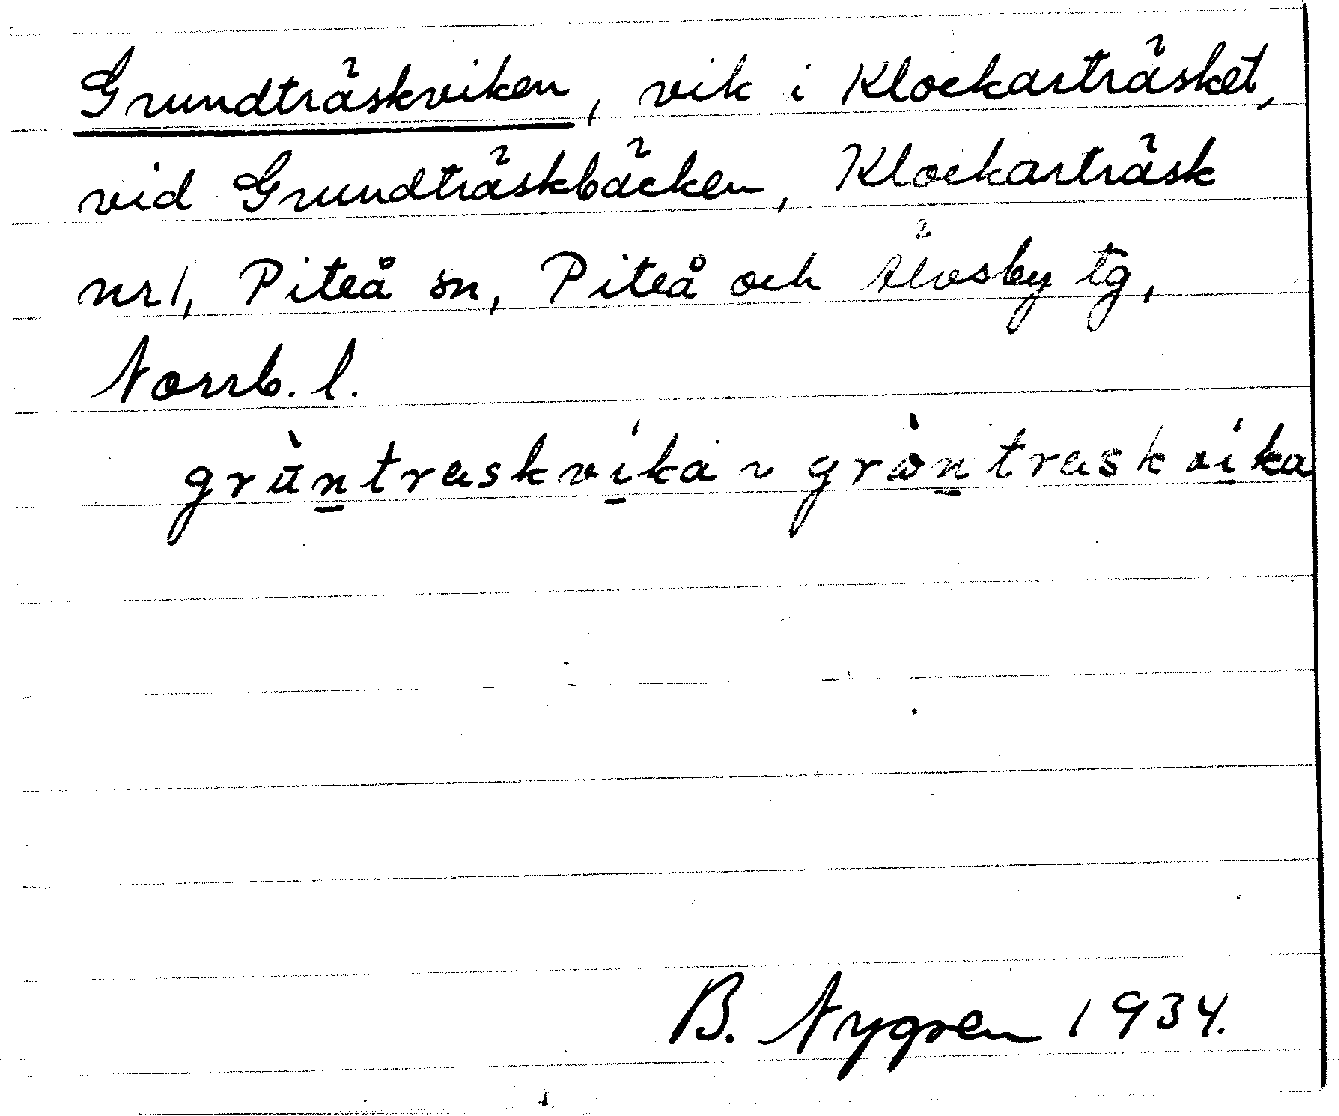 Grundträskviken, vik i Klockarträsket,
vid Grundträskbäcken, Klockarträsk
nr 1, Piteå sn, Piteå och Älvsby tg,
Norrb. l.
grùn̲traskví̲ka ~ gròn̲traskví̲ka
B. Nygren 1934.